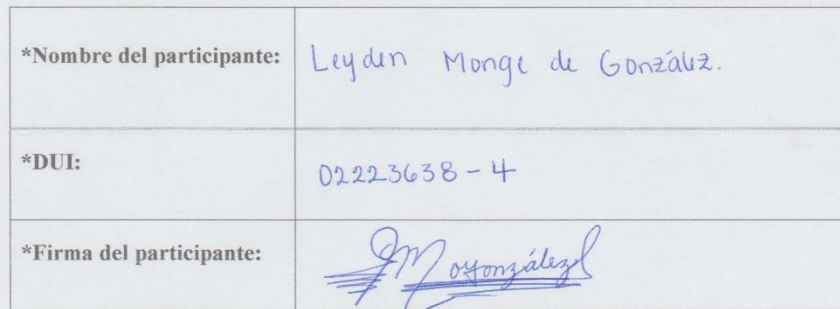 *Nombre del participante: Leyden Monge de González.
*DUI: 02223638-4
*Firma del participante: